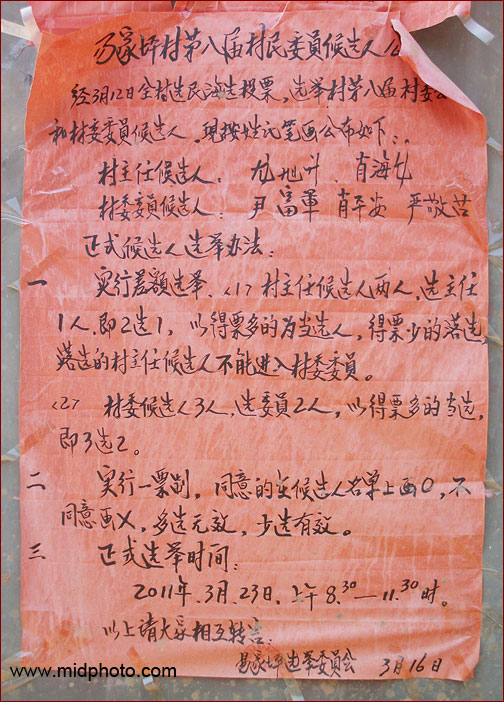 易家坪村第八届村民委員候选人
经3月12日全村选民海选投票，选举村第八届村委
和村委委員候选人，現按姓氏笔画公布如下：
村主任候选人： 尤旭升 肖海
村委委員候选人： 尹富軍 肖平安 严敬苦
正式候选人选举办法：
一 实行差额选举、<1> 村主任候选人两人，选主任
1人，即2选1，以得票多的为当选人，得票少的落选，
落选的村主任候选人不能进入村委委員。
<2> 村委候选人3人，选委員2人，以得票多的当选，
即3选2。
二 实行一票制，同意的在候选人名单上画O，不
同意画X，多选无效，少选有效。
三 正式选举时间：
2011年.3月.23日、上午8.30—11.30时。
以上请大家相互转告：
易家坪选举委員会 3月16日
www.midphoto.com